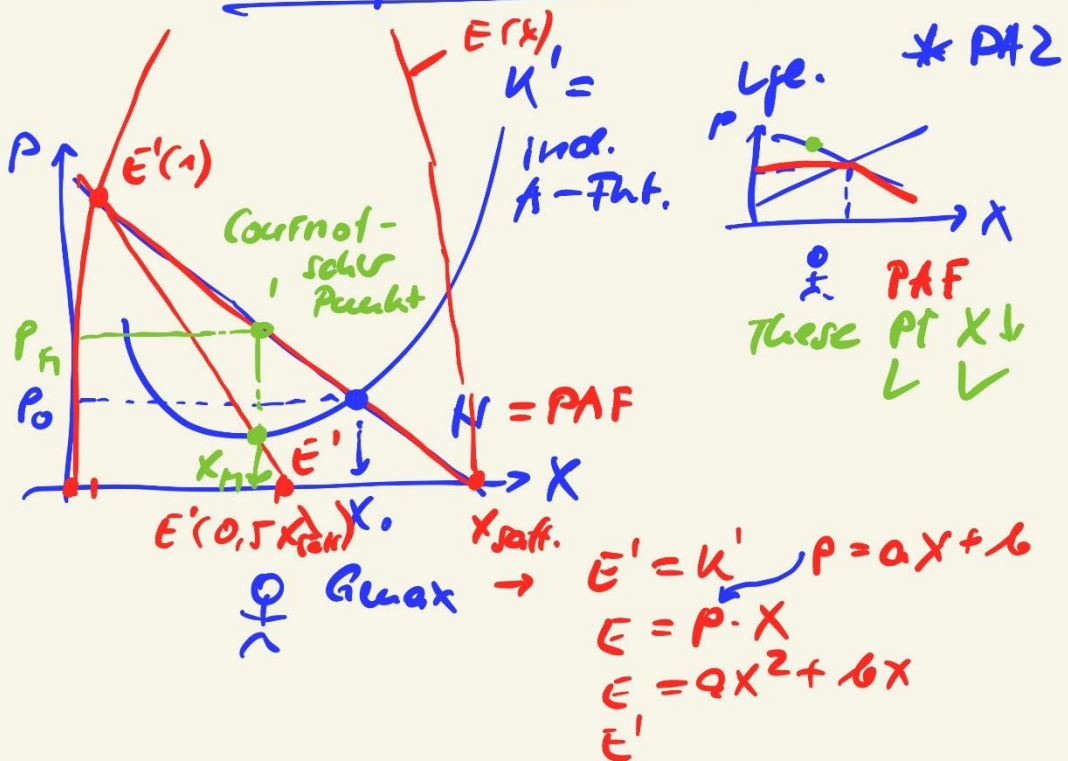 E(x)
K' =
ind.
A-Fkt.
* PA2
Lge.
P
X
PAF
These P↑ X↓
✓ ✓
P
E'(1)
Cournot-
scher
Punkt
P_M
P_0
N = PAF
X_M
E'
X
E'(0,5 X_sätt.)
X_0
X_sätt.
Gmax → E' = K'
P = aX + b
E = P · X
E = aX² + bX
E'